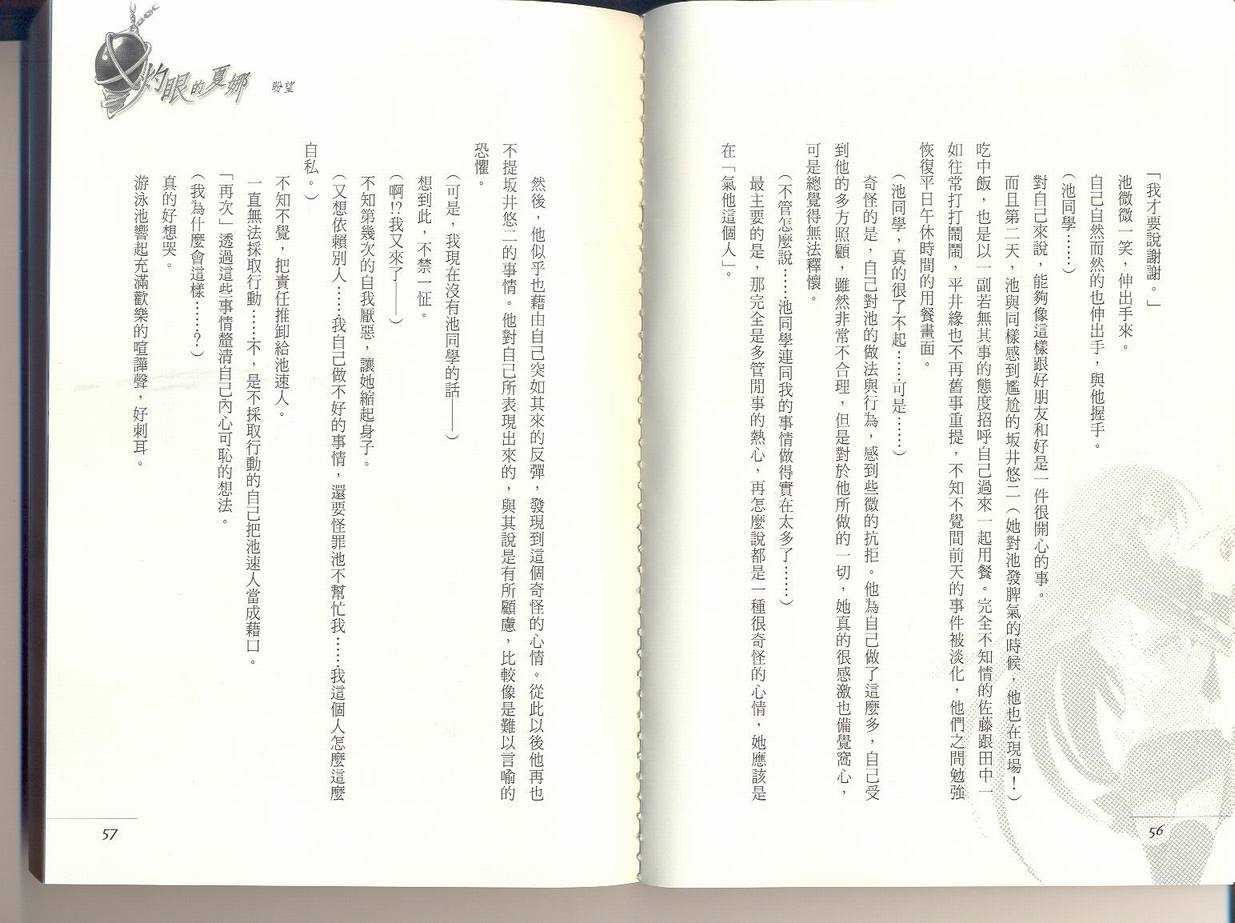 「我才要說謝謝。」
池微微一笑，伸出手來。
自己自然而然的也伸出手，與他握手。
（池同學……）
對自己來說，能夠像這樣跟好朋友和好是一件很開心的事。
而且第二天，池與同樣感到尷尬的坂井悠二（她對池發脾氣的時候，他也在現場！）
吃中飯，也是以一副若無其事的態度招呼自己過來一起用餐。完全不知情的佐藤跟田中一
如往常打打鬧鬧，平井緣也不再舊事重提，不知不覺間前天的事件被淡化，他們之間勉強
恢復平日午休時間的用餐畫面。
（池同學，真的很了不起……可是……）
奇怪的是，自己對池的做法與行為，感到些微的抗拒。他為自己做了這麼多，自己受
到他的多方照顧，雖然非常不合理，但是對於他所做的一切，她真的很感激也備覺窩心，
可是總覺得無法釋懷。
（不管怎麼說……池同學連同我的事情做得實在太多了……）
最主要的是，那完全是多管閒事的熱心，再怎麼說都是一種很奇怪的心情，她應該是
在「氣他這個人」。
56
灼眼的夏娜 盼望
然後，他似乎也藉由自己突如其來的反彈，發現到這個奇怪的心情。從此以後他再也
不提坂井悠二的事情。他對自己所表現出來的，與其說是有所顧慮，比較像是難以言喻的
恐懼。
（可是，我現在沒有池同學的話——）
想到此，不禁一怔。
（啊!?我又來了——）
不知第幾次的自我厭惡，讓她縮起身子。
（又想依賴別人……我自己做不好的事情，還要怪罪池不幫忙我……我這個人怎麼這麼
自私。）
不知不覺，把責任推卸給池速人。
一直無法採取行動……不，是不採取行動的自己把池速人當成藉口。
「再次」透過這些事情釐清自己內心可恥的想法。
（我為什麼會這樣……？）
真的好想哭。
游泳池響起充滿歡樂的喧譁聲，好刺耳。
57